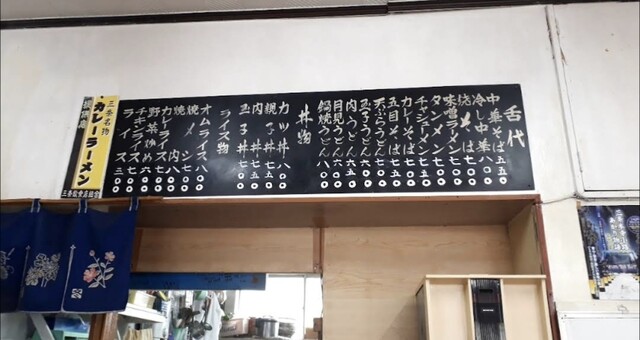 舌代
中華そば 五五〇
冷し中華 八〇〇
焼そば 七〇〇
味噌ラーメン 七〇〇
タンメン 七〇〇
チャシューメン 七五〇
カレーそば 七五〇
五目そば 八〇〇
天ぷらうどん 七〇〇
玉子うどん 六五〇
肉うどん 六五〇
月見うどん 六五〇
鍋焼うどん 八〇〇
丼物
カツ丼 八〇〇
親子丼 七五〇
肉丼 七五〇
玉子丼 六五〇
ライス物
オムライス 八〇〇
焼メシ 七〇〇
焼肉 八〇〇
カレーライス 七五〇
野菜炒め 六〇〇
チキンライス 七〇〇
ライス 三〇〇
三条名物
カレーラーメン
三条飲食店組合